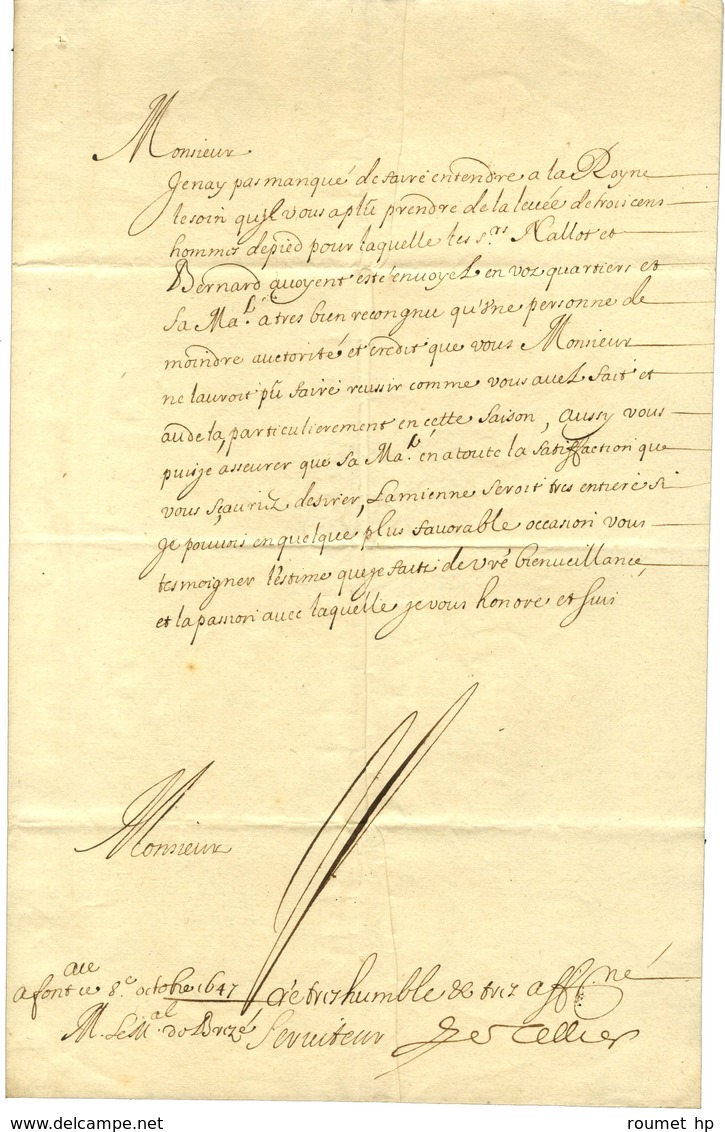 Monsieur
Je nay pas manqué de faire entendre a la Royne
le soin quil vous a plû prendre de la levée de trois cens
hommes de pied pour laquelle les s.rs Nallot et
Bernard avoyent esté envoyez en voz quartiers et
Sa Ma.té a tres bien recongnu qu'une personne de
moindre auctorité et credit que vous Monsieur
ne lauroit pû faire reussir comme vous avez fait et
au dela, particulierement en cette saison, aussy vous
puisje asseurer que Sa Ma.té en a toute la satisfaction que
vous sçauriez desirer, La mienne seroit tres entiere si
Je pouvois en quelque plus favorable occasion vous
tesmoigner l'estime que je faits de vré bienveillance,
et la passion avec laquelle je vous honore et suis
Monsieur
a font.au ce 8.e octobre 1647
vré trez humble & trez aff.né
M. le M.al de Brezé
Serviteur
Le Tellier
www.delcampe.net
roumet hp